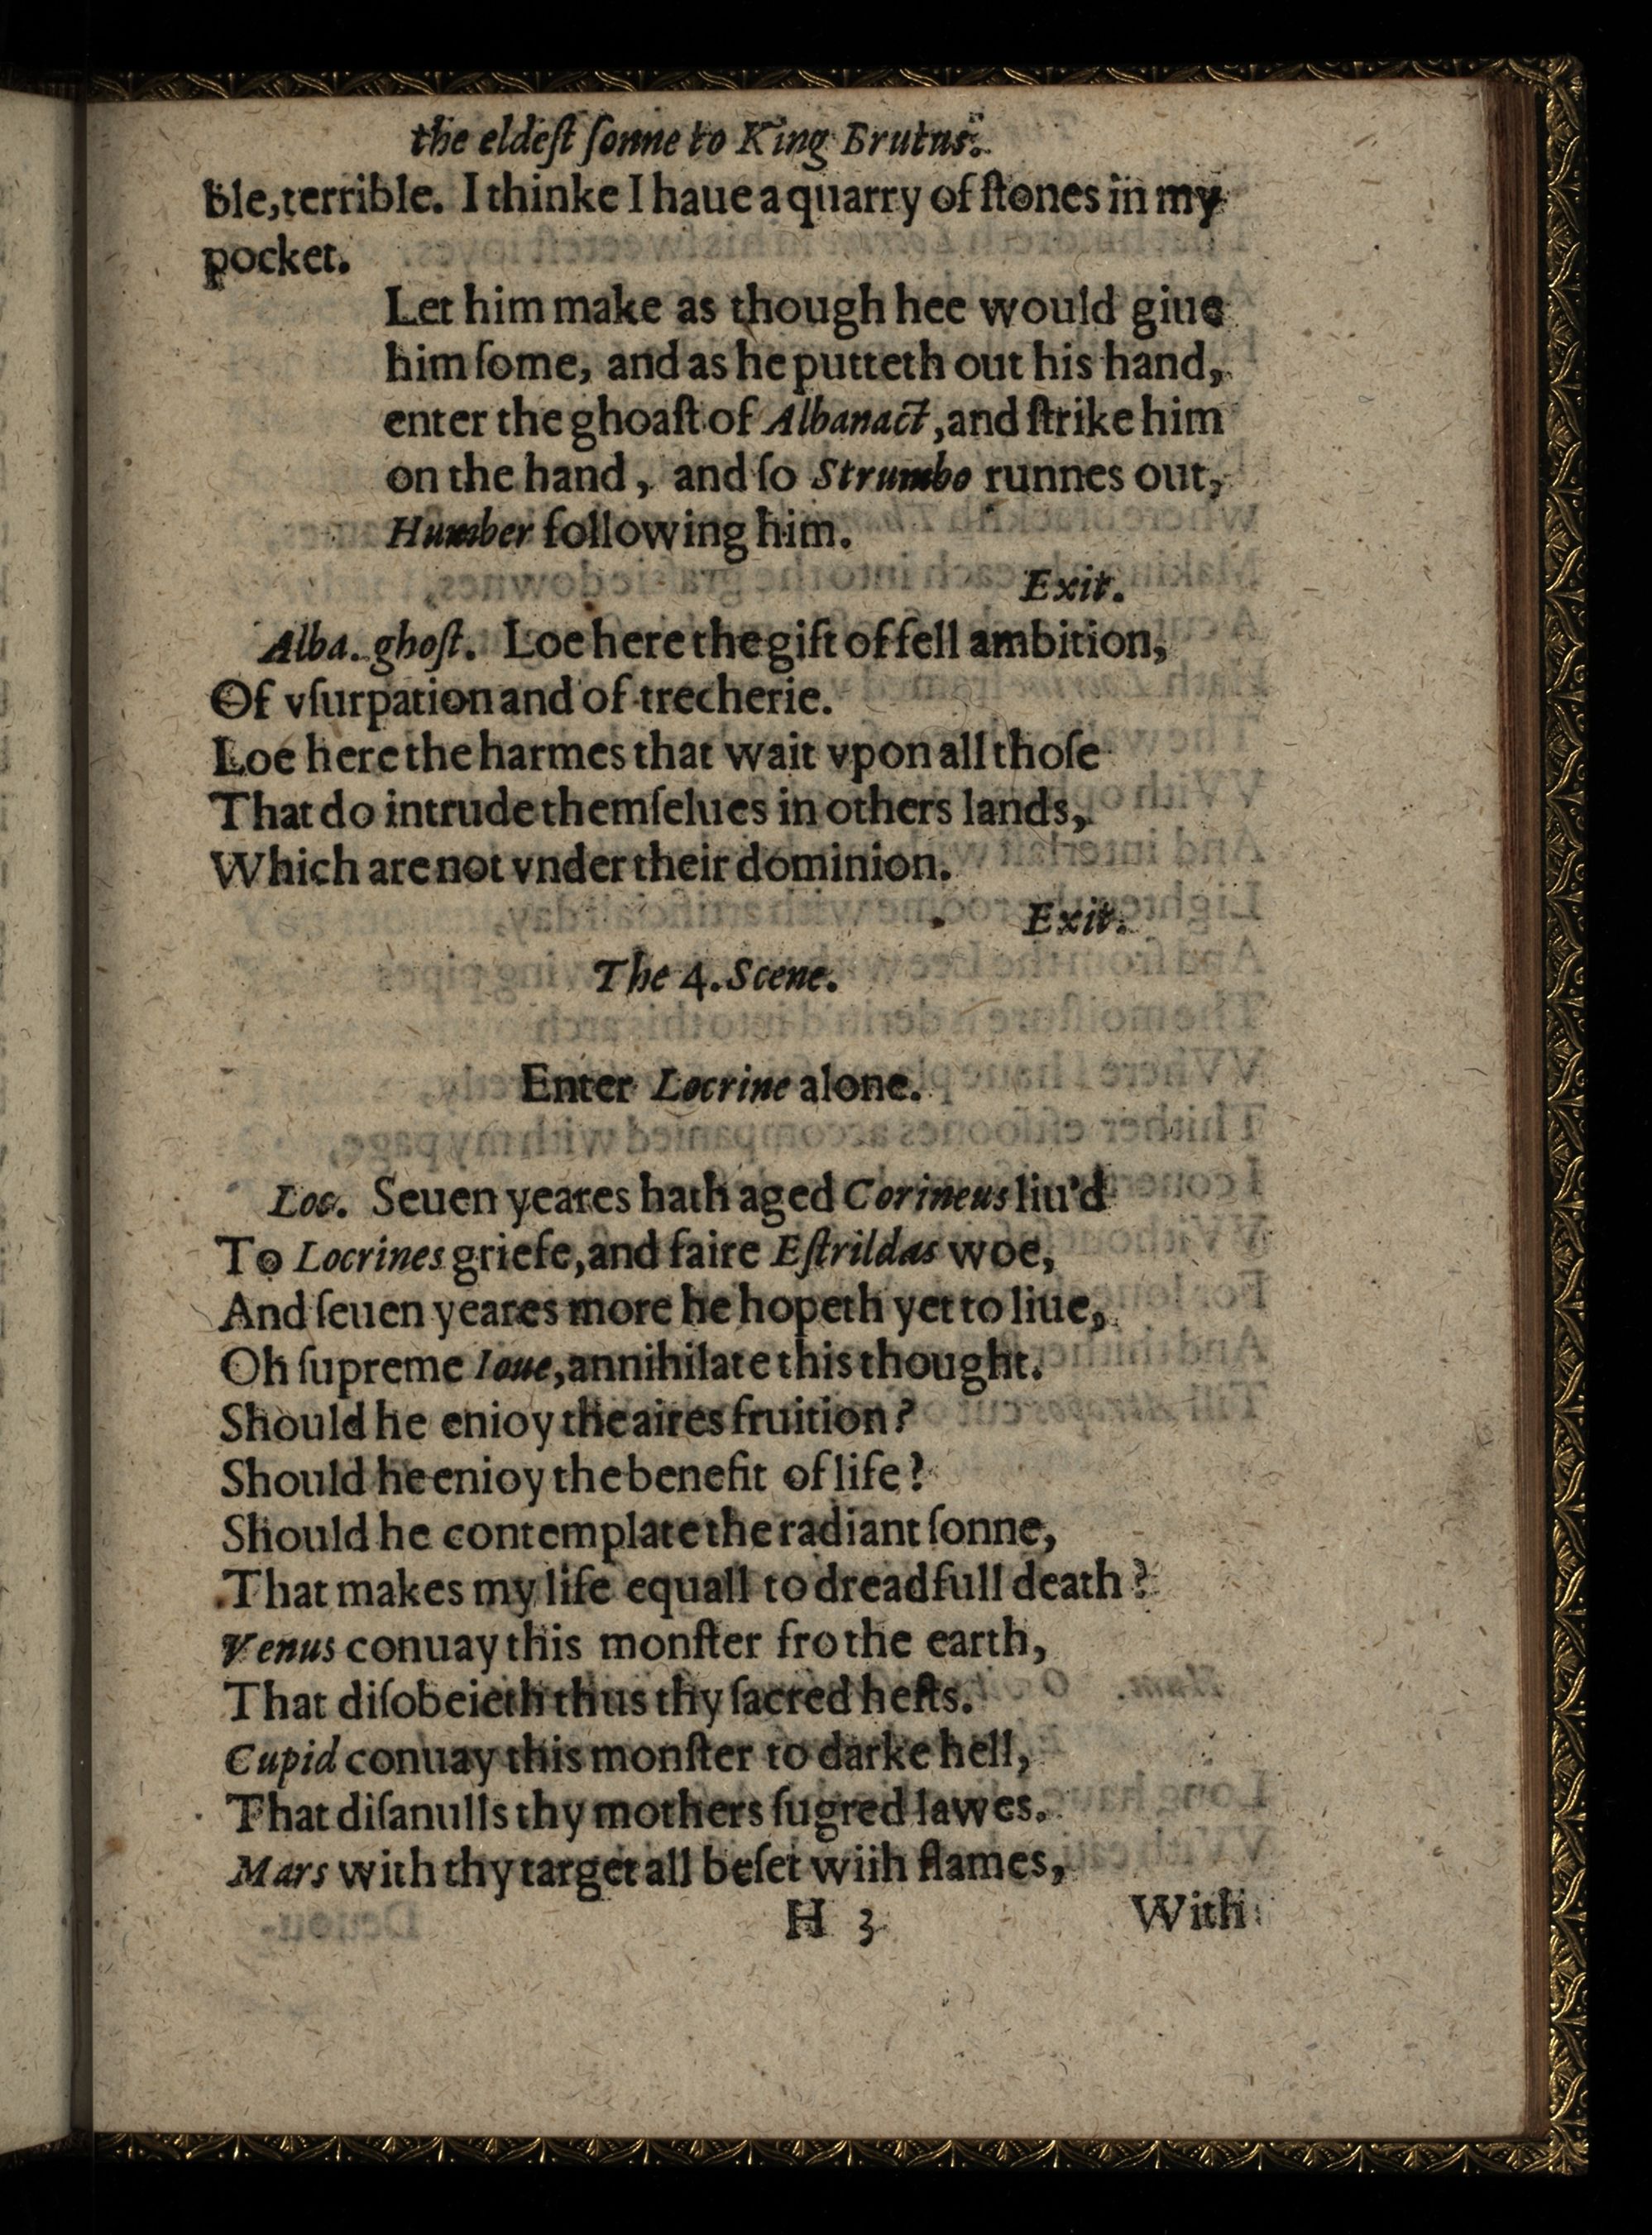 the eldeſt ſonne to King Brutus.
ble,terrible. I thinke I haue a quarry of ſtones in my
pocket.
Let him make as though hee would giue
him ſome, and as he putteth out his hand,
enter the ghoaſt of Albanact, and ſtrike him
on the hand, and ſo Strumbo runnes out,
Humber following him.
Exit.
Alba. ghoſt. Loe here the gift of fell ambition,
Of vſurpation and of trecherie.
Loe here the harmes that wait vpon all thoſe
That do intrude themſelues in others lands,
Which are not vnder their dominion.
Exit.
The 4. Scene.
Enter Locrine alone.
Loc. Seuen yeares hath aged Corineus liu'd
To Locrines griefe, and faire Eſtrildas woe,
And ſeuen yeares more he hopeth yet to liue,
Oh ſupreme Ioue, annihilate this thought.
Should he enioy the aires fruition?
Should he enioy the benefit of life?
Should he contemplate the radiant ſonne,
That makes my life equall to dreadfull death?
Venus conuay this monſter fro the earth,
That diſobeieth thus thy ſacred heſts.
Cupid conuay this monſter to darke hell,
That diſanulls thy mothers ſugred lawes.
Mars with thy target all beſet wiih flames,
H 3 With